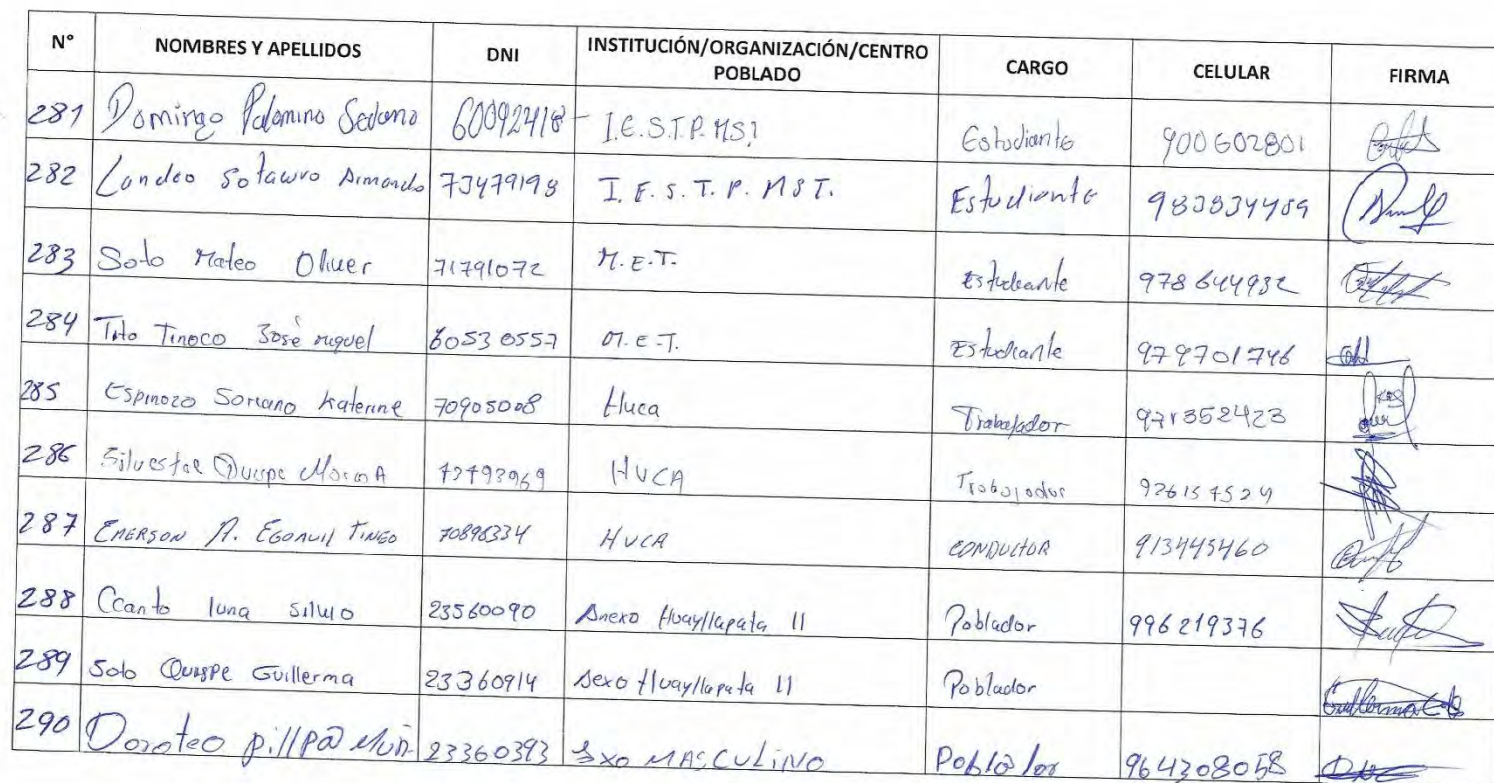 N° NOMBRES Y APELLIDOS DNI INSTITUCIÓN/ORGANIZACIÓN/CENTRO POBLADO CARGO CELULAR FIRMA
281 Domingo Palomino Sedano 60092418 I.E.S.T.P. MST Estudiante 900602801
282 Landeo Sotawro Armando 73479198 I.E.S.T.P. MST. Estudiante 983834489
283 Soto Mateo Oliver 71791072 M.E.T. Estudeante 978644932
284 Tito Tinoco José miguel 60530557 M.E.T. Estudeante 979701746
285 Espinozo Soriano Katerine 70905008 Huca Trabajador 971352423
286 Silvestre Quispe 73793969 HUCA Trabajador 926157524
287 EMERSON A. EGOAVIL TINEO 70896334 HUCA CONDUCTOR 913445460
288 Ccanto luna silvio 23560090 Anexo Huayllapata II Poblador 996219376
289 Soto Quispe Guillerma 23360914 Aexo Huayllapata II Poblador
290 Doroteo pillpa 23360393 MASCULINO Poblador 964308058